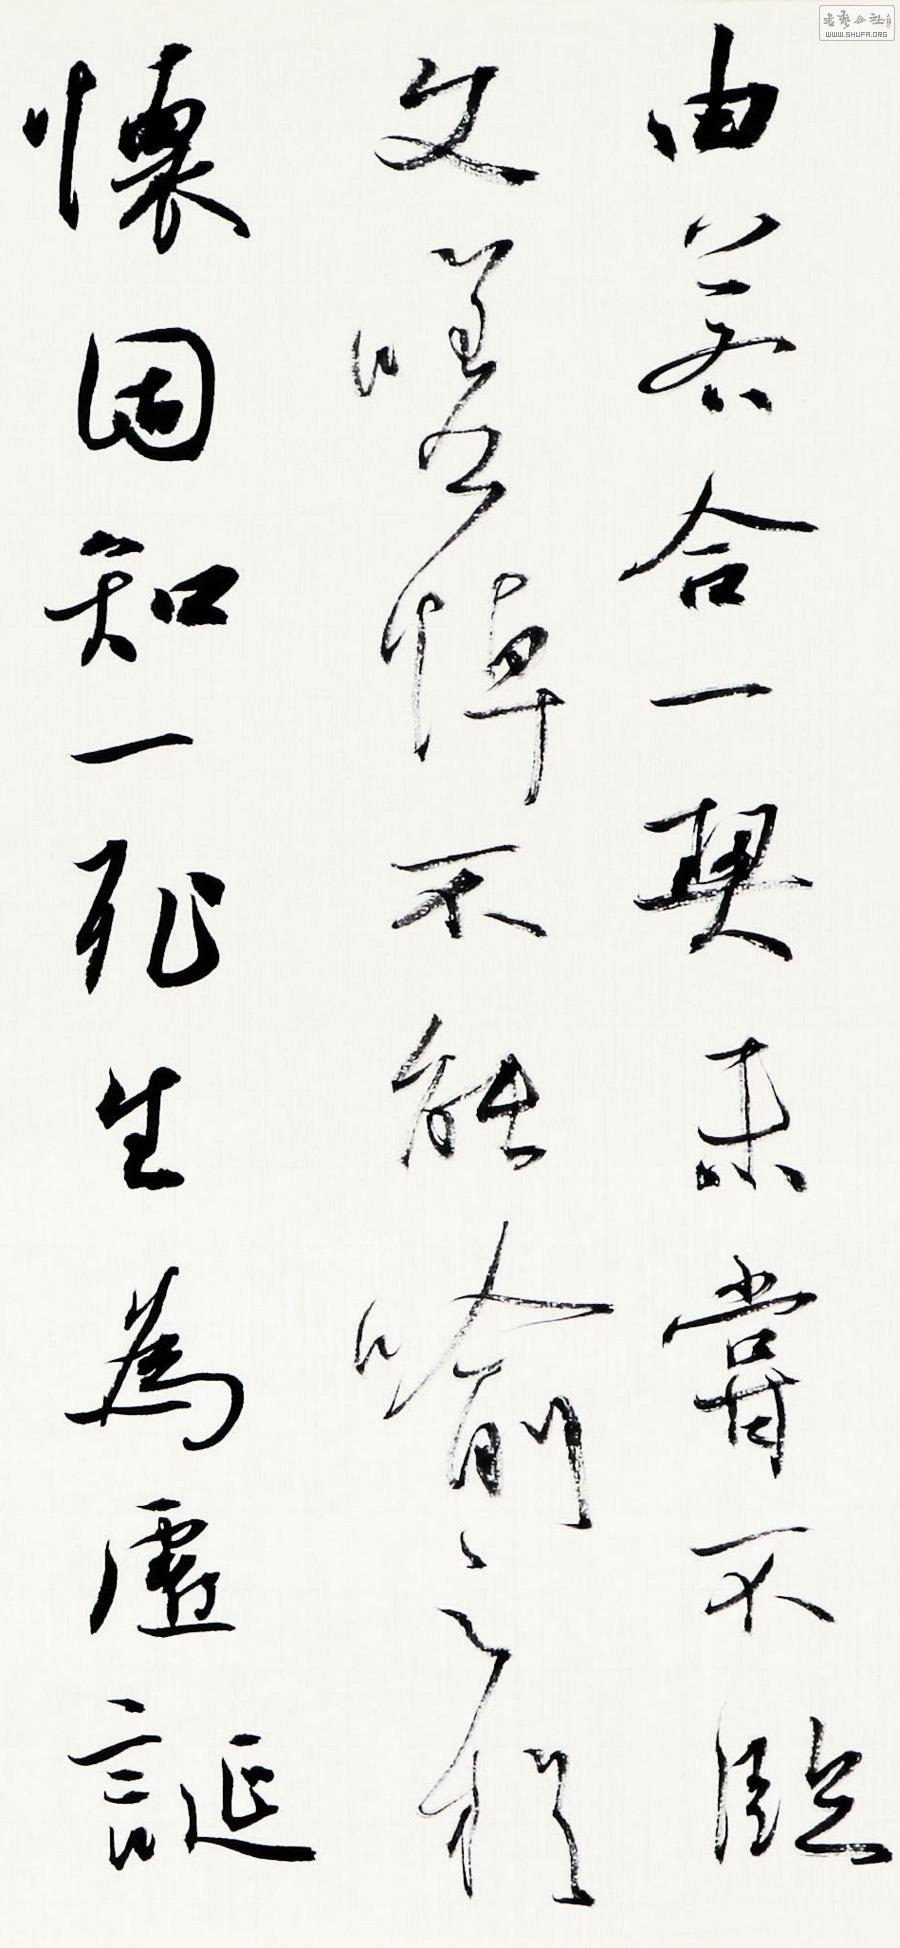 書藝公社
WWW.SHUFA.ORG
由若合一契未嘗不臨
文嗟悼不能喻之於
懷固知一死生為虛誕